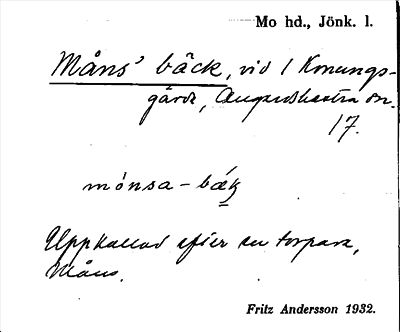 Mo hd., Jönk. l.
Måns' bäck, vid 1 Konungs-
gärde,
17.
mónsa-bǽk
Uppkallad efter en torpare,
Måns.
Fritz Andersson 1932.